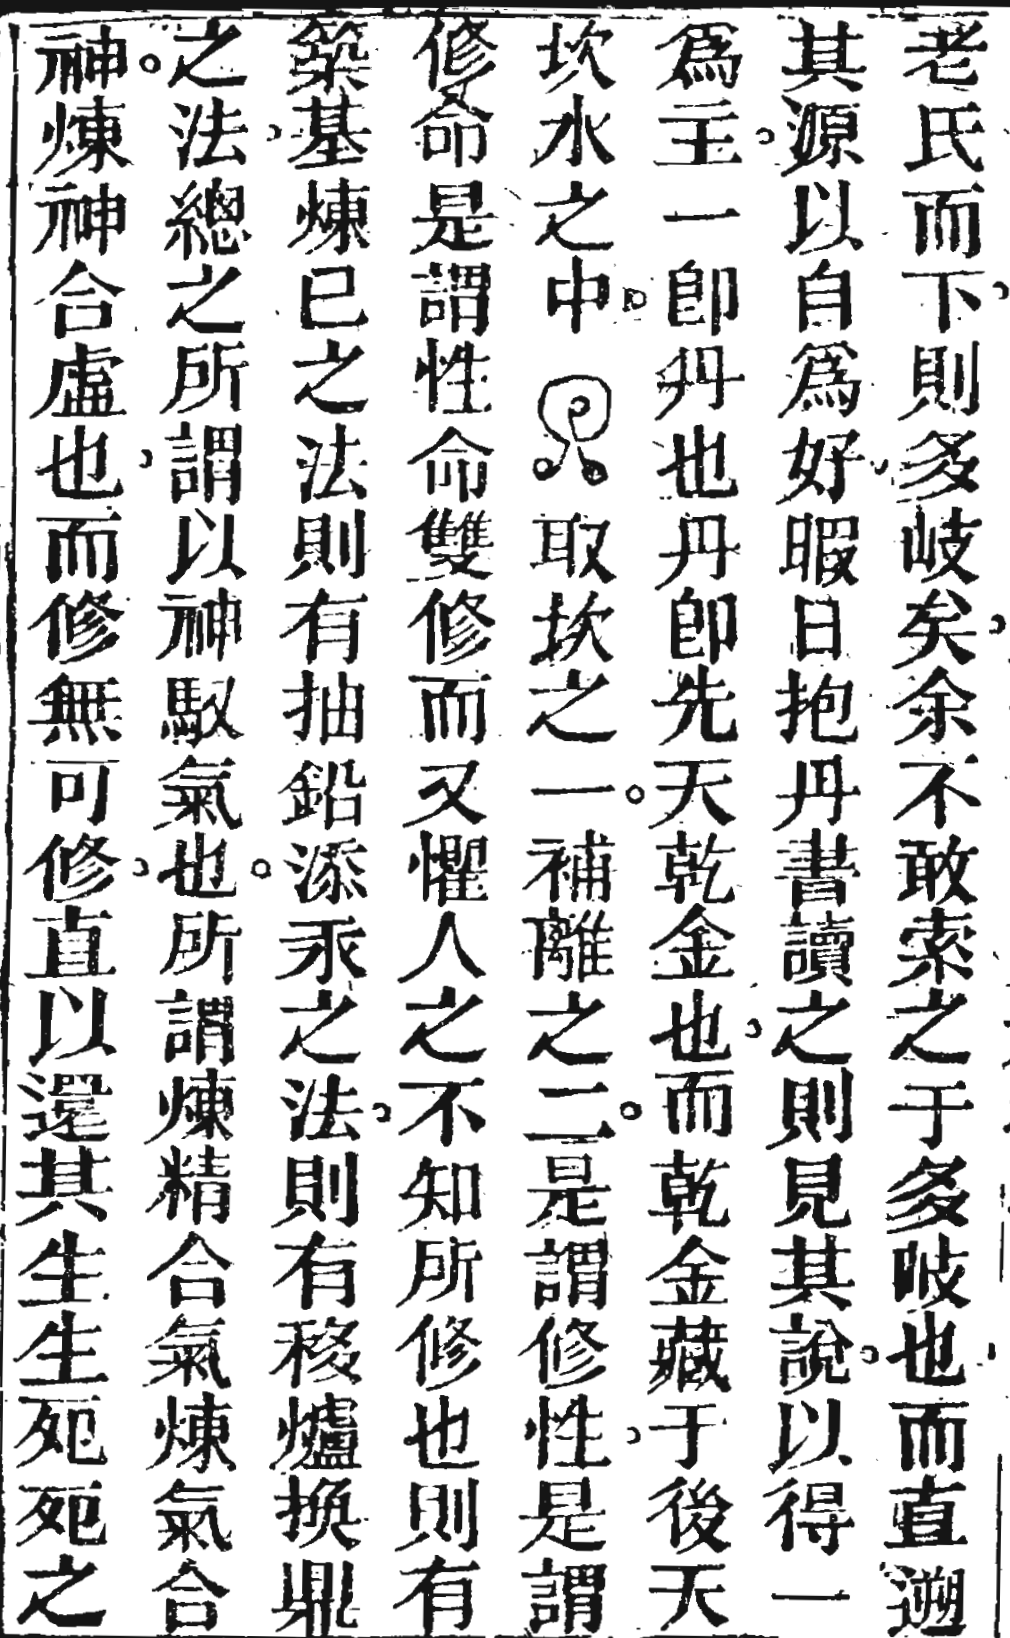 老氏而下則多岐矣余不敢索之于多岐也而直遡
其源以自為好暇日抱丹書讀之則見其說以得一
為主一卽丹也丹卽先天乾金也而乾金藏于後天
坎水之中取坎之一補離之二是謂修性是謂
修命是謂性命雙修而又懼人之不知所修也則有
築基煉已之法則有抽鉛添汞之法則有移爐換鼎
之法總之所謂以神馭氣也所謂煉精合氣煉氣合
神煉神合虛也而修無可修直以還其生生死死之